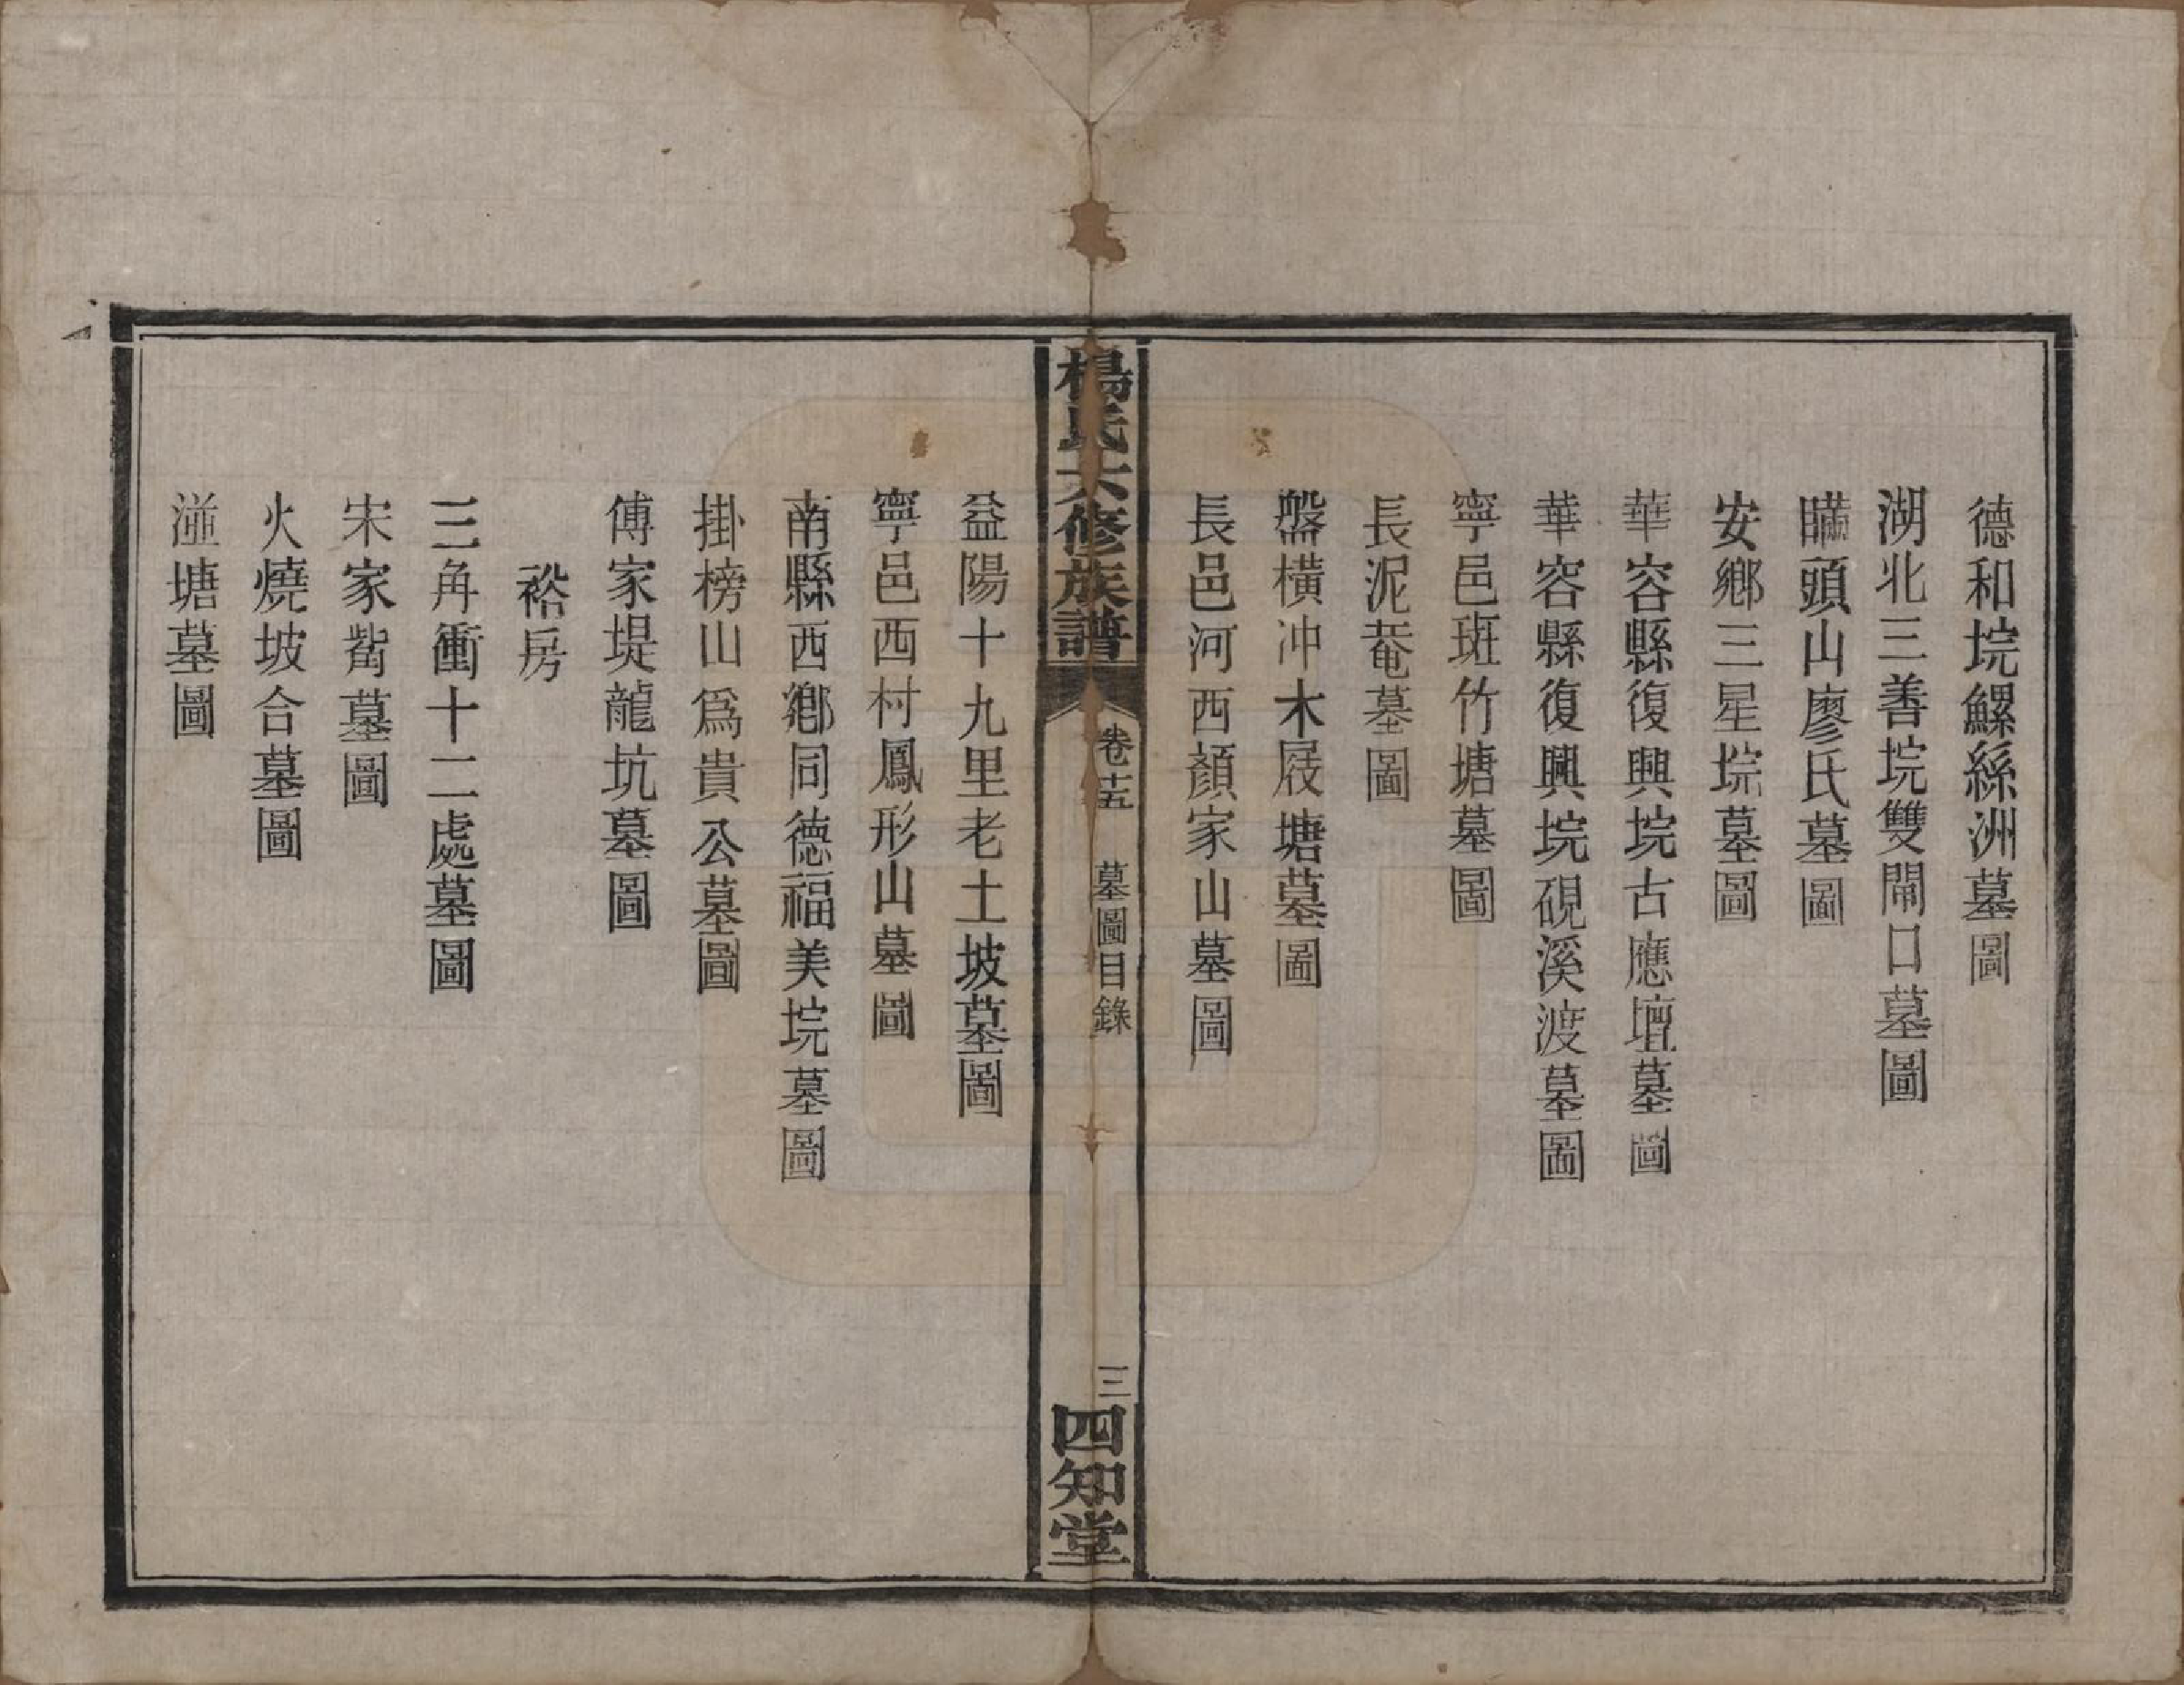 德和垸鰥絲洲墓圖
湖北三善垸雙閘口墓圖
頭山廖氏墓圖
安鄉三星垸墓圖
華容縣復興垸古應壇墓圖
華容縣復興垸硯溪渡墓圖
寧邑斑竹塘墓圖
長泥菴墓圖
盤橫冲木屐塘墓圖
長邑河西顏家山墓圖
楊氏六修族譜
卷十五
墓圖目錄
三
四知堂
益陽十九里老土坡墓圖
寧邑西村鳳形山墓圖
南縣西鄉同德福美垸墓圖
掛榜山爲貴公墓圖
傅家堤龍坑墓圖
裕房
三角衝十二處墓圖
宋家墓圖
火燒坡合墓圖
塘墓圖